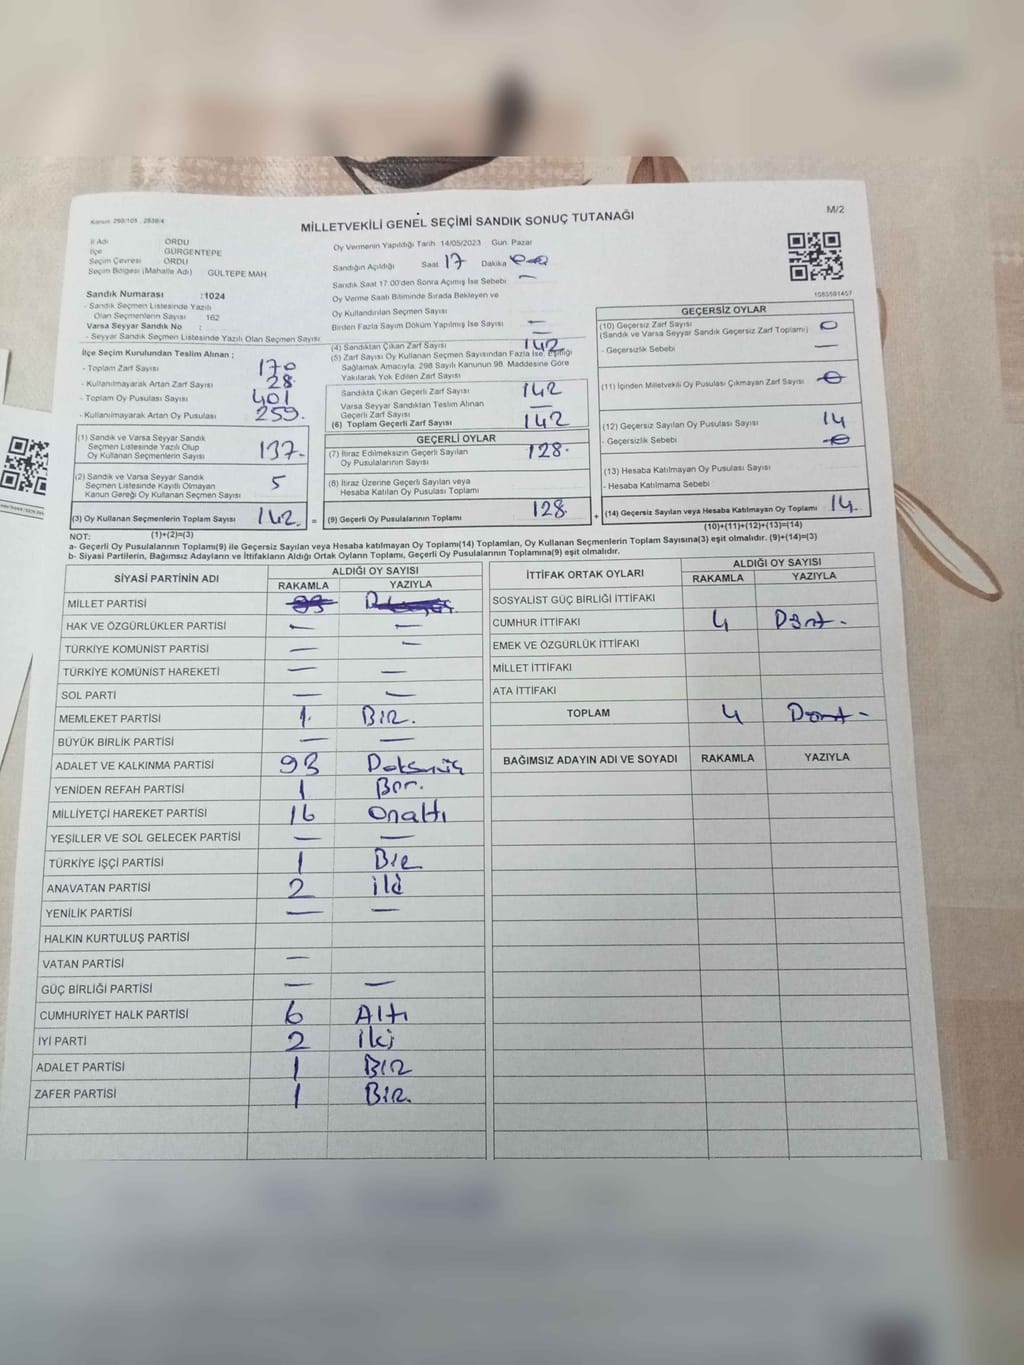 Kanun: 298/105 , 2839/4
M/2
MİLLETVEKİLİ GENEL SEÇİMİ SANDIK SONUÇ TUTANAĞI
İl Adı ORDU
İlçe GÜRGENTEPE
Seçim Çevresi ORDU
Seçim Bölgesi (Mahalle Adı) GÜLTEPE MAH
Sandık Numarası :1024
- Sandık Seçmen Listesinde Yazılı
Olan Seçmenlerin Sayısı : 162
Varsa Seyyar Sandık No :
- Seyyar Sandık Seçmen Listesinde Yazılı Olan Seçmen Sayısı
Oy Vermenin Yapıldığı Tarih 14/05/2023 Gün Pazar
Sandığın Açıldığı Saat 17 Dakika
Sandık Saat 17:00'den Sonra Açımış İse Sebebi —
Oy Verme Saati Bitiminde Sırada Bekleyen ve
Oy Kullandırılan Seçmen Sayısı
Birden Fazla Sayım Döküm Yapılmış İse Sayısı —
1083591457
İlçe Seçim Kurulundan Teslim Alınan ;
- Toplam Zarf Sayısı 170
- Kullanılmayarak Artan Zarf Sayısı 28
- Toplam Oy Pusulası Sayısı 401
- Kullanılmayarak Artan Oy Pusulası 259.
(1) Sandık ve Varsa Seyyar Sandık
Seçmen Listesinde Yazılı Olup
Oy Kullanan Seçmenlerin Sayısı 137-
(2) Sandık ve Varsa Seyyar Sandık
Seçmen Listesinde Kayıtlı Olmayan
Kanun Gereği Oy Kullanan Seçmen Sayısı 5
(3) Oy Kullanan Seçmenlerin Toplam Sayısı 142.
(1)+(2)=(3)
(4) Sandıktan Çıkan Zarf Sayısı 142
(5) Zarf Sayısı Oy Kullanan Seçmen Sayısından Fazla İse, Eşitliği
Sağlamak Amacıyla, 298 Sayılı Kanunun 98. Maddesine Göre
Yakılarak Yok Edilen Zarf Sayısı
Sandıkta Çıkan Geçerli Zarf Sayısı 142
Varsa Seyyar Sandıktan Teslim Alınan
Geçerli Zarf Sayısı —
(6) Toplam Geçerli Zarf Sayısı 142
GEÇERLİ OYLAR
(7) İtiraz Edilmeksizin Geçerli Sayılan
Oy Pusulalarının Sayısı 128.
(8) İtiraz Üzerine Geçerli Sayılan veya
Hesaba Katılan Oy Pusulası Toplamı
= (9) Geçerli Oy Pusulalarının Toplamı 128
GEÇERSİZ OYLAR
(10) Geçersiz Zarf Sayısı 0
(Sandık ve Varsa Seyyar Sandık Geçersiz Zarf Toplamı)
- Geçersizlik Sebebi —
(11) İçinden Milletvekili Oy Pusulası Çıkmayan Zarf Sayısı
(12) Geçersiz Sayılan Oy Pusulası Sayısı 14
- Geçersizlik Sebebi
(13) Hesaba Katılmayan Oy Pusulası Sayısı
- Hesaba Katılmama Sebebi
+ (14) Geçersiz Sayılan veya Hesaba Katılmayan Oy Toplamı 14.
(10)+(11)+(12)+(13)=(14)
NOT:
a- Geçerli Oy Pusulalarının Toplamı(9) ile Geçersiz Sayılan veya Hesaba katılmayan Oy Toplamı(14) Toplamları, Oy Kullanan Seçmenlerin Toplam Sayısına(3) eşit olmalıdır. (9)+(14)=(3)
b- Siyasi Partilerin, Bağımsız Adayların ve İttifakların Aldığı Ortak Oyların Toplamı, Geçerli Oy Pusulalarının Toplamına(9) eşit olmalıdır.
SİYASİ PARTİNİN ADI
ALDIĞI OY SAYISI
RAKAMLA YAZIYLA
MİLLET PARTİSİ
HAK VE ÖZGÜRLÜKLER PARTİSİ — —
TÜRKİYE KOMÜNİST PARTİSİ — —
TÜRKİYE KOMÜNİST HAREKETİ — —
SOL PARTİ — —
MEMLEKET PARTİSİ 1. BİR.
BÜYÜK BİRLİK PARTİSİ — —
ADALET VE KALKINMA PARTİSİ 93
YENİDEN REFAH PARTİSİ 1 Bir.
MİLLİYETÇİ HAREKET PARTİSİ 16 onaltı
YEŞİLLER VE SOL GELECEK PARTİSİ — —
TÜRKİYE İŞÇİ PARTİSİ 1 Bir
ANAVATAN PARTİSİ 2 iki
YENİLİK PARTİSİ — —
HALKIN KURTULUŞ PARTİSİ
VATAN PARTİSİ —
GÜÇ BİRLİĞİ PARTİSİ — —
CUMHURİYET HALK PARTİSİ 6 Altı
İYİ PARTİ 2 iki
ADALET PARTİSİ 1 BIR
ZAFER PARTİSİ 1 Bir.
İTTİFAK ORTAK OYLARI
ALDIĞI OY SAYISI
RAKAMLA YAZIYLA
SOSYALİST GÜÇ BİRLİĞİ İTTİFAKI
CUMHUR İTTİFAKI 4 Dört -
EMEK VE ÖZGÜRLÜK İTTİFAKI
MİLLET İTTİFAKI
ATA İTTİFAKI
TOPLAM 4 Dört -
BAĞIMSIZ ADAYIN ADI VE SOYADI RAKAMLA YAZIYLA